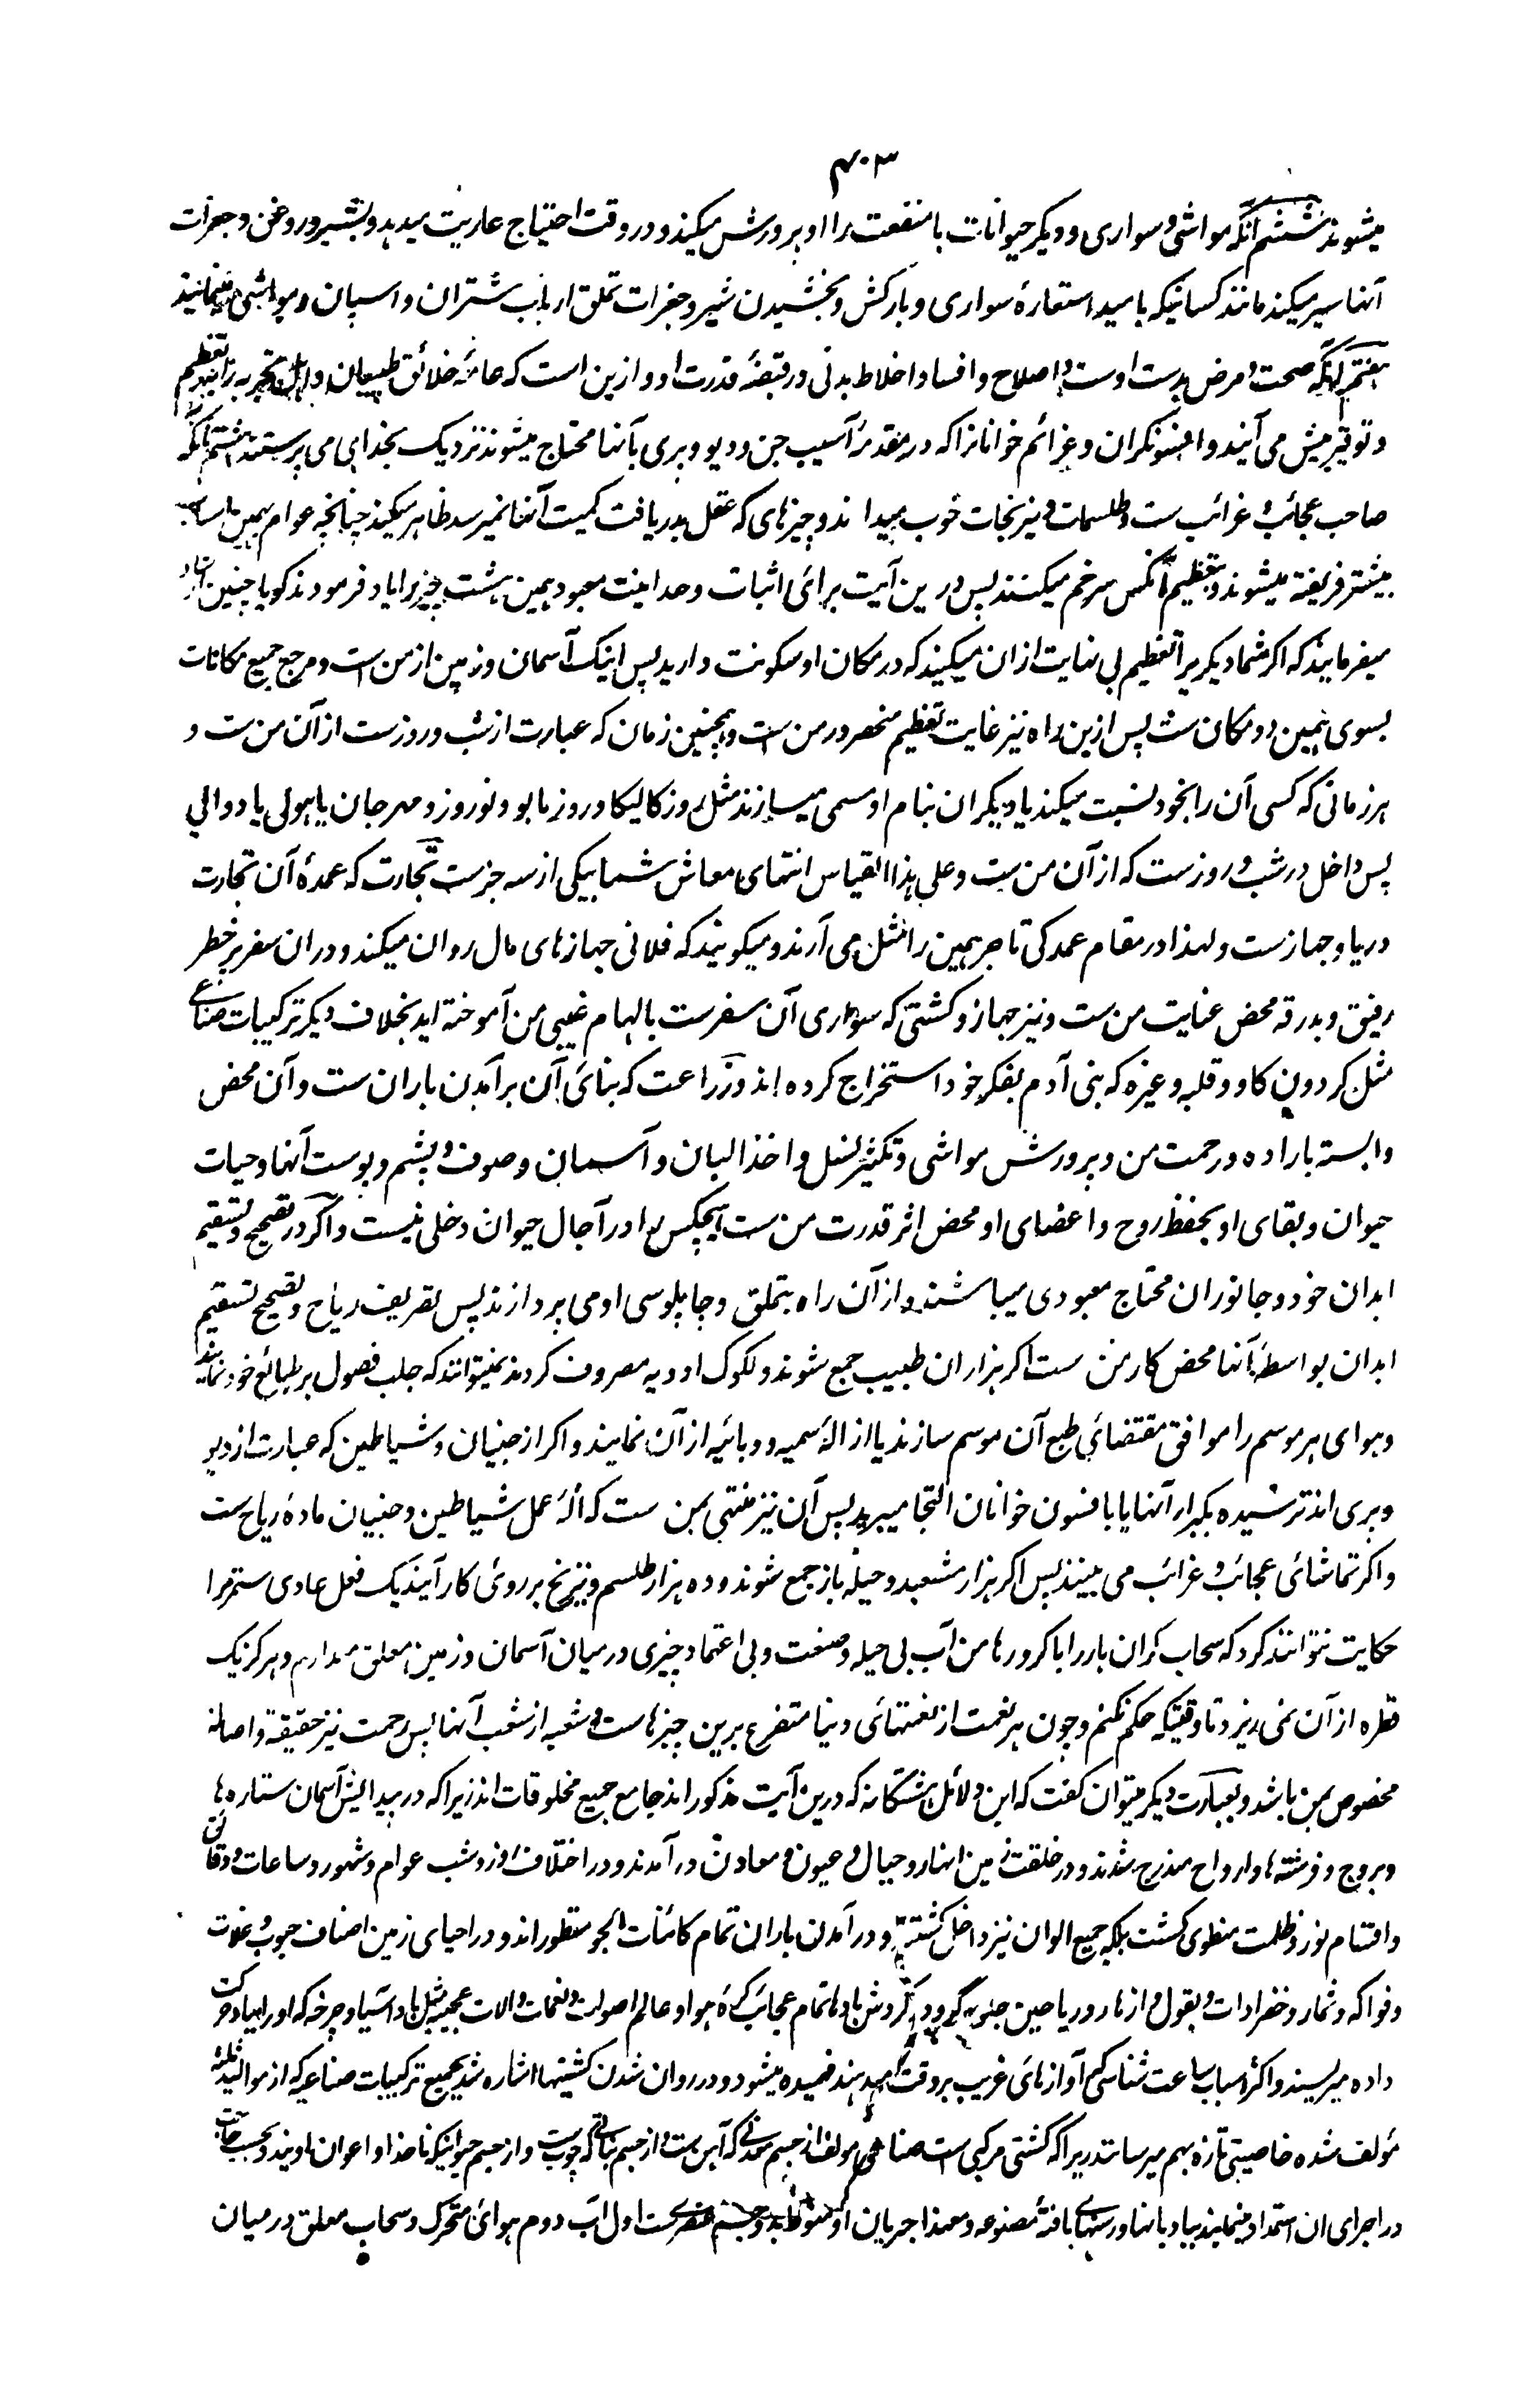 ۴۰۳
میشوند ششم آنکه مواشی و سواری و دیگر حیوانات با منفعت را او پرورش میکند و در وقت احتیاج عاریت میدهد و بشیر و روغن و جغرات
آنها سیر میکند مانند کسانیکه بامید استعارهٔ سواری و بارکش و بخشیدن شیر و جغرات تملق ارباب شتران و اسپان و مواشی مینمایند
هفتم آنکه صحت و مرض بدست اوست و اصلاح و افساد اخلاط بدنی در قبضهٔ قدرت او و ازین است که عامهٔ خلائق طبیبان و اهل تجربه را بتعظیم
و توقیر پیش می آیند و افسونگران و عزائم خوانان را که در مقدمهٔ آسیب جن و دیو و پری بآنها محتاج میشوند نزدیک بخدایی می پرستند هشتم آنکه
صاحب عجائب و غرائب ست و طلسمات و نیرنجات خوب میداند و چیزهای که عقل بدریافت کمیت آنها نمیرسد ظاهر میکند چنانچه عوام بهمین
بیشتر فریفته میشوند و بتعظیم آنکس سر خم میکنند پس درین آیت برای اثبات وحدانیت معبود همین هشت چیز را یاد فرمودند گویا چنین
میفرمایند که اگر شما دیگر را تعظیم بی نهایت ازان میکنید که در مکان او سکونت دارید پس اینک آسمان و زمین از من است و مرجع جمیع مکانات
بسوی همین دو مکان ست پس ازین راه نیز غایت تعظیم منحصر در من ست و همچنین زمان که عبارت از شب و روز ست از آن من ست و
هر زمانی که کسی آن را بخود نسبت میکند یا دیگران بنام او مسمی میسازند مثل روز کالیکا و روز مابو و نوروز و مهرجان یا هولی یا دوالی
پس داخل در شب و روز ست که از آن من ست و علی هذا القیاس انتهای معاش شما بیکی از سه چیز ست تجارت که عمدهٔ آن تجارت
دریا و جهاز ست و لهذا در مقام عمدگی تاجر همین را مثل می آرند و میگویند که فلانی جهازهای مال روان میکند و دران سفر پر خطر
رفیق و بدرقه محض عنایت من ست و نیز جهاز و کشتی که سواری آن سفر ست بالهام غیبی من آموخته اید بخلاف دیگر ترکیبات صناعی
مثل گردون گاو و قلبه و غیره که بنی آدم بفکر خود استخراج کرده اند و زراعت که بنای آن بر آمدن باران ست و آن محض
وابسته باراده و رحمت من و پرورش مواشی و تکثیر نسل و اخذ البان و آسمان و صوف و پشم و پوست آنها و حیات
حیوان و بقای او بحفظ روح و اعضای او محض اثر قدرت من ست هیچکس را در آجال حیوان دخلی نیست و اگر در تصحیح و تسقیم
ابدان خود و جانوران محتاج معبودی میباشند و از آن راه بتملق و چاپلوسی او می پردازند پس تصریف ریاح و تصحیح تسقیم
ابدان بواسطهٔ آنها محض کار من ست اگر هزاران طبیب جمع شوند و لکوک ادویه مصروف کردند نمیتوانند که جلب فصول بر طبائع خود نمایند
و هوای هر موسم را موافق مقتضای طبع آن موسم سازند یا ازالهٔ سمیه و وبائیه از آن نمایند و اگر از جنیان و شیاطین که عبارت از دیو
و پری اند ترسیده بکبار آنها یا بافسون خوانان التجا میبرید پس آن نیز منتهی بمن ست که آلهٔ عمل شیاطین و جنیان مادهٔ ریاح ست
و اگر تماشای عجائب و غرائب می بینند پس اگر هزار مشعبد و حیله باز جمع شوند و ده هزار طلسم و نیرنج بر روی کار آیند یک فعل عادی مستمر را
حکایت نتوانند کرد که سحاب گران بار را با کرورها من آب بی حیله و صنعت و بی اعتماد چیزی در میان آسمان و زمین معلق میدارم و هرگز یک
قطره از آن نمی ریزد تا وقتیکه حکم نکنم و چون هر نعمت از نعمتهای دنیا متفرع برین چیزهاست و شعبه از شعب آنها پس رحمت نیز حقیقة و اصالة
مخصوص بمن باشد و بعبارت دیگر میتوان گفت که این دلائل هشتگانه که درین آیت مذکور اند جامع جمیع مخلوقات اند زیرا که در پیدایش آسمان ستاره ها
و بروج و فرشته ها و ارواح مندرج شدند و در خلقت زمین انهار و جبال و عیون و معادن در آمدند و در اختلاف روز و شب عوام و شهور و ساعات و دقائق
و اقسام نور و ظلمت منطوی گشت بلکه جمیع الوان نیز داخل گشتند و در آمدن باران تمام کائنات الجو منطور اند و در احیای زمین اصناف حبوب و غلات
و فواکه و ثمار و خضرادات و بقول و ازهار و ریاحین و در گردش بادها تمام عجائب کرهٔ هوا و عالم اصوات و نغمات و آلات عجیبه مثل باد آسیا و چرخه که او را بباد حرکت
داده میریسند و اکثر اسباب ساعت شناسی که آوازهای غریب بر وقت میدهند فهمیده میشود و در روان شدن کشتیها اشاره شد بجمیع ترکیبات صناعیه که از موالید ثلثه
مؤلف شده خاصیتی تازه بهم میرسانند زیرا که کشتی مرکبی است صناعی مؤلف از جسم معدنی که آهن ست و از جسم نباتی که چوب ست و از جسم حیوانیکه ناخدا و اعوان اویند و بحسب حاجت
در اجرای ان استمداد مینمایند بباد بانها و رسنهای بافتهٔ مصنوعه و معهذا جریان او منوط بدو جسم عنصریست اول آب دوم هوای متحرک و سحاب معلق در میان